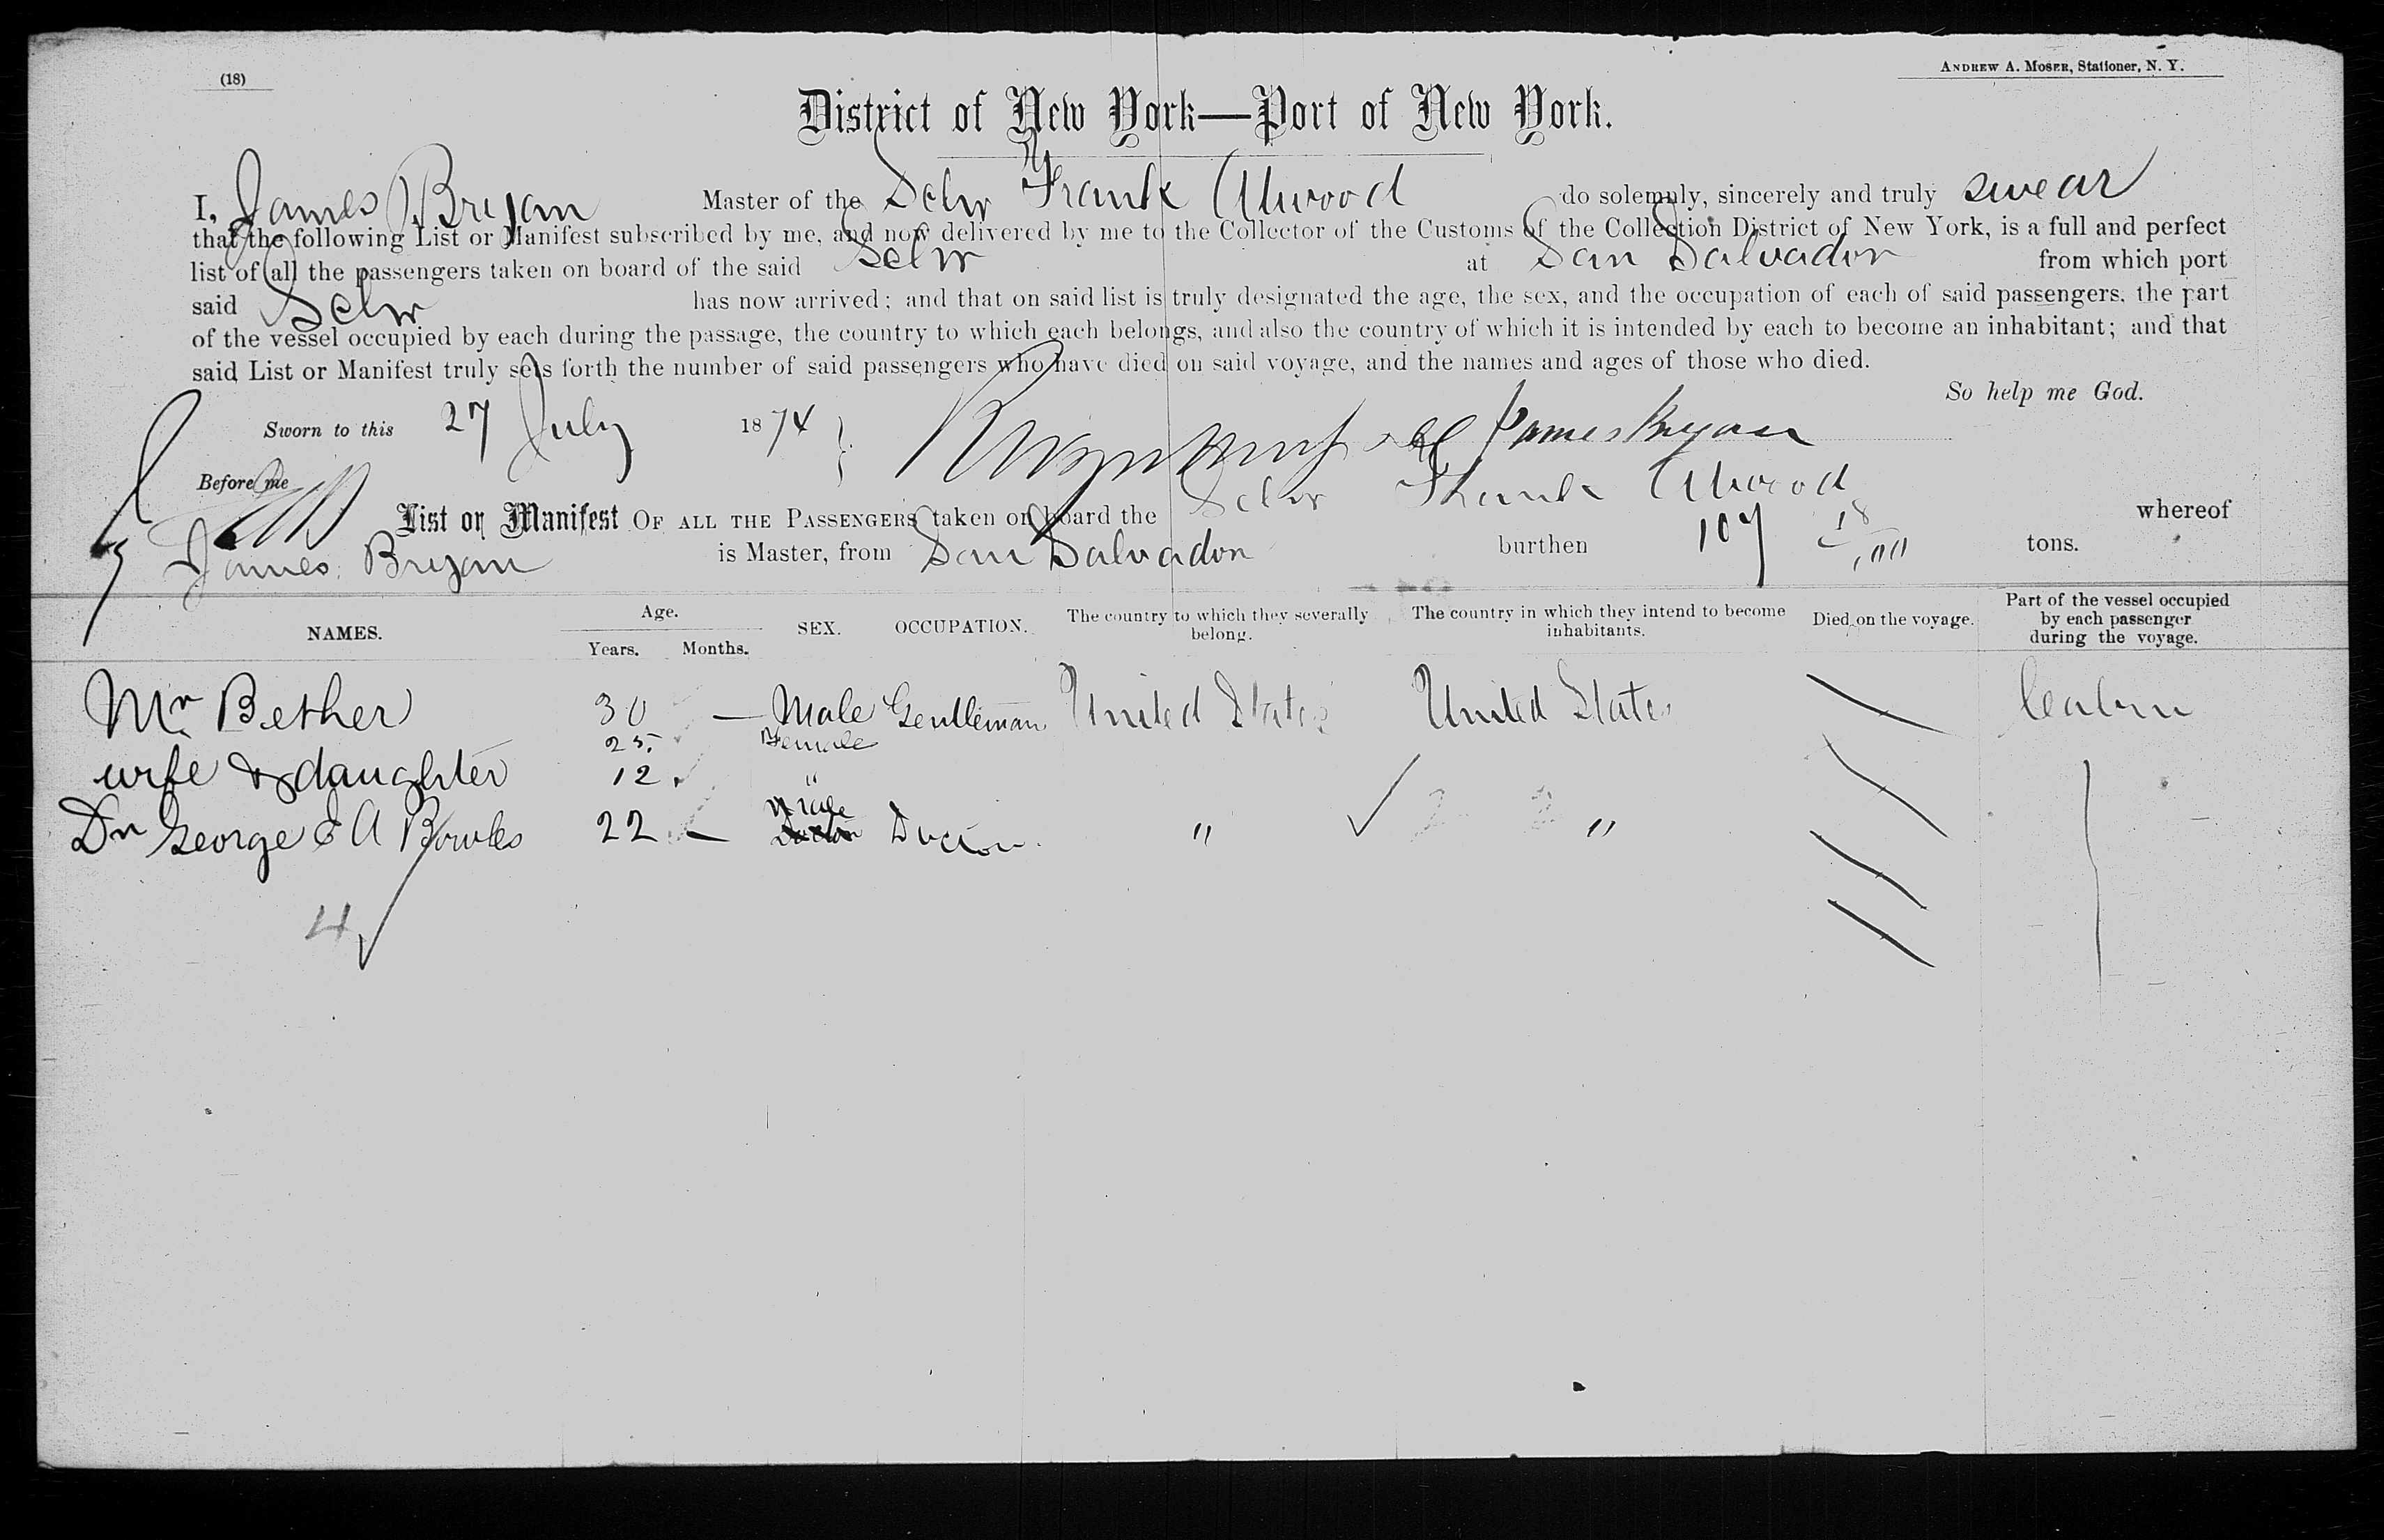 (18)
ANDREW A. MOSER, Stationer, N. Y.
District of New York—Port of New York.
I, James Bryan Master of the Schr Frank Atwood do solemnly, sincerely and truly swear
that the following List or Manifest subscribed by me, and now delivered by me to the Collector of the Customs of the Collection District of New York, is a full and perfect
list of all the passengers taken on board of the said Schr at San Salvador from which port
said Schr has now arrived; and that on said list is truly designated the age, the sex, and the occupation of each of said passengers, the part
of the vessel occupied by each during the passage, the country to which each belongs, and also the country of which it is intended by each to become an inhabitant; and that
said List or Manifest truly sets forth the number of said passengers who have died on said voyage, and the names and ages of those who died.
So help me God.
Sworn to this 27 July 1874 James Bryan
Before me
List or Manifest OF ALL THE PASSENGERS taken on board the Schr Frank Atwood whereof
James Bryan is Master, from San Salvador burthen 107 18/100 tons.
NAMES. Age. Years. Months. SEX. OCCUPATION. The country to which they severally belong. The country in which they intend to become inhabitants. Died on the voyage. Part of the vessel occupied by each passenger during the voyage.
Mr Bether 30 — Male Gentleman United States United States Cabin
25 Female
wife & daughter 12 "
Dr George E A Bowles 22 — Male Doctor " "
4